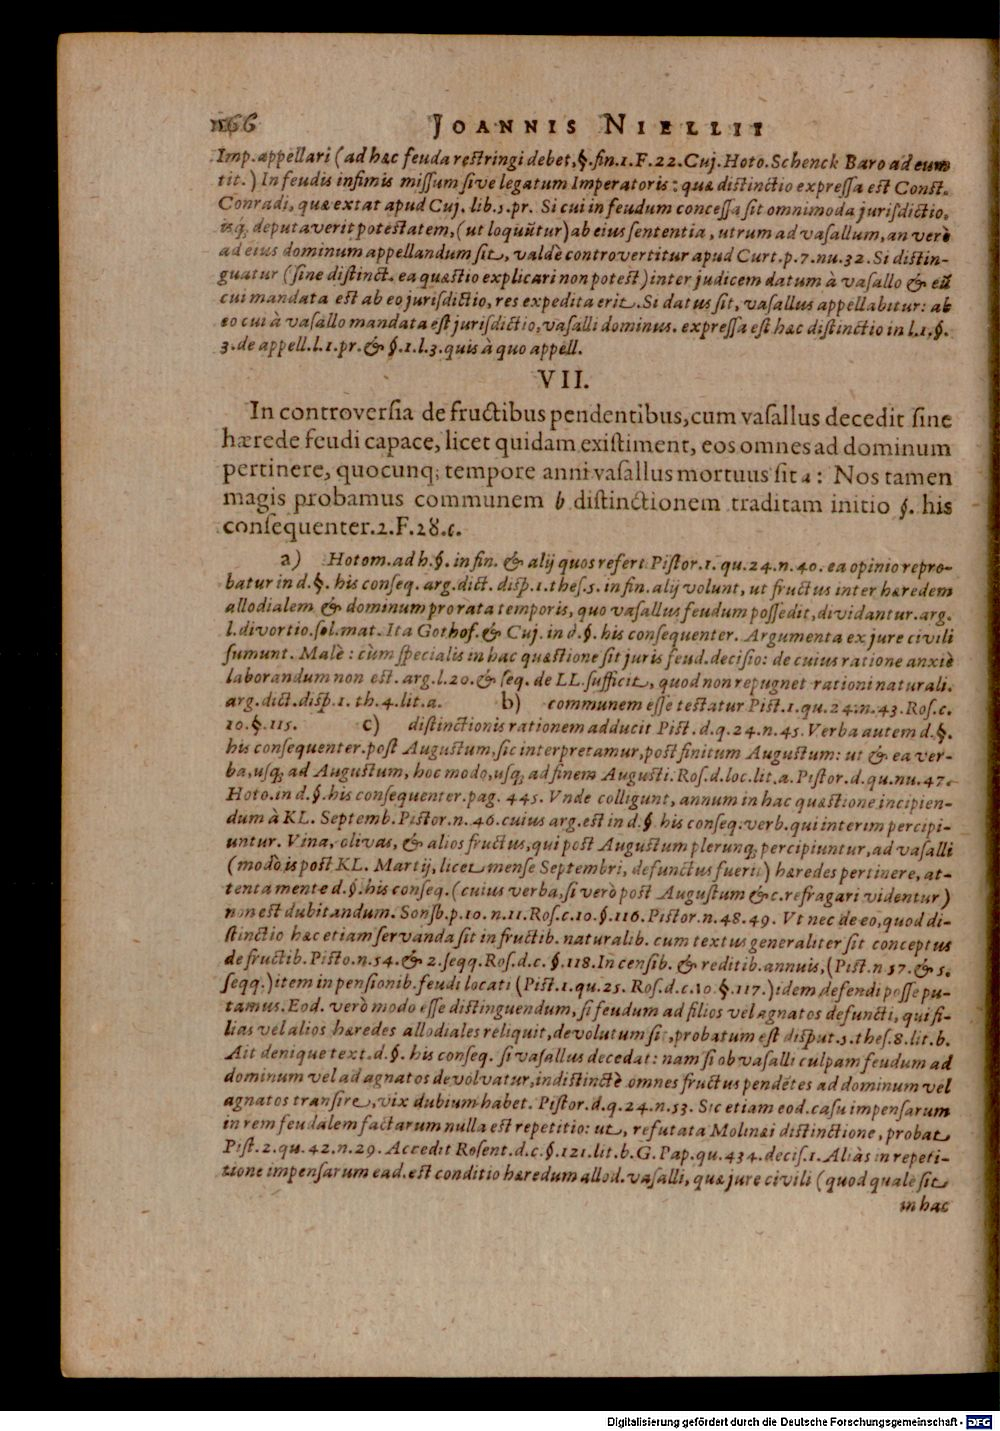 166 JOANNIS NIELLII
Imp. appellari (ad hæc feuda restringi debet, §. fin. 1. F. 22. Cuj. Hoto. Schenck Baro ad eum
tit.) In feudis infimis missum sive legatum Imperatoris: quæ distinctio expressa est Const.
Conradi, quæ extat apud Cuj. lib. 5. pr. Si cui in feudum concessa sit omnimoda jurisdictio,
isq́; deputaverit potestatem, (ut loquũtur) ab eius sententia, utrum ad vasallum, an verò
ad eius dominum appellandum sit, valdè controvertitur apud Curt. p. 7. nu. 32. Si distin-
guatur (sine distinct. ea quæstio explicari non potest) inter judicem datum à vasallo & eũ
cui mandata est ab eo jurisdictio, res expedita erit. Si datus sit, vasallus appellabitur: ab
eo cui à vasallo mandata est jurisdictio, vasalli dominus. expressa est hæc distinctio in l. 1. §.
3. de appell. l. 1. pr. & §. 1. l. 3. quis à quo appell.
VII.
In controversia de fructibus pendentibus, cum vasallus decedit sine
hærede feudi capace, licet quidam existiment, eos omnes ad dominum
pertinere, quocunq; tempore anni vasallus mortuus sit a: Nos tamen
magis probamus communem b distinctionem traditam initio §. his
consequenter. 2. F. 28. c.
a) Hotom. ad h. §. in fin. & alij quos refert Pistor. 1. qu. 24. n. 40. ea opinio repro-
batur in d. §. his conseq. arg. dict. disp. 1. thes. 5. in fin. alij volunt, ut fructus inter hæredem
allodialem & dominum pro rata temporis, quo vasallus feudum possedit, dividantur. arg.
l. divortio. sol. mat. Ita Gothof. & Cuj. in d. §. his consequenter. Argumenta ex jure civili
sumunt. Malè: cùm specialis in hac quæstione sit juris feud. decisio: de cuius ratione anxiè
laborandum non est. arg. l. 20. & seq. de LL. sufficit, quod non repugnet rationi naturali.
arg. dict. disp. 1. th. 4. lit. a. b) communem esse testatur Pist. 1. qu. 24. n. 43. Ros. c.
10. §. 115. c) distinctionis rationem adducit Pist. d. q. 24. n. 45. Verba autem d. §.
his consequenter. post Augustum, sic interpretamur, post finitum Augustum: ut & ea ver-
ba, usq; ad Augustum, hoc modo, usq; ad finem Augusti. Ros. d. loc. lit. a. Pistor. d. qu. nu. 47.
Hoto. in d. §. his consequenter. pag. 445. Vnde colligunt, annum in hac quæstione incipien-
dum à KL. Septemb. Pistor. n. 46. cuius arg. est in d. § his conseq. verb. qui interim percipi-
untur. Vina, olivas, & alios fructus, qui post Augustum plerunq; percipiuntur, ad vasalli
(modò is post KL. Martij, licet mense Septembri, defunctus fuerit) hæredes pertinere, at-
tenta mente d. §. his conseq. (cuius verba, si verò post Augustum &c. refragari videntur)
non est dubitandum. Sonsb. p. 10. n. 11. Ros. c. 10. §. 116. Pistor. n. 48. 49. Vt nec de eo, quod di-
stinctio hæc etiam servanda sit in fructib. naturalib. cum textus generaliter sit conceptus
de fructib. Pisto. n. 54. & 2. seqq. Ros. d. c. §. 118. In censib. & reditib. annuis, (Pist. n 57. & 5.
seqq.) item in pensionib. feudi locati (Pist. 1. qu. 25. Ros. d. c. 10. §. 117.) idem defendi posse pu-
tamus. Eod. verò modo esse distinguendum, si feudum ad filios vel agnatos defuncti, qui fi-
lias vel alios hæredes allodiales reliquit, devolutum sit, probatum est disput. 5. thes. 8. lit. b.
Ait denique text. d. §. his conseq. si vasallus decedat: nam si ob vasalli culpam feudum ad
dominum vel ad agnatos devolvatur, indistinctè omnes fructus pendẽtes ad dominum vel
agnatos transire, vix dubium habet. Pistor. d. q. 24. n. 53. Sic etiam eod. casu impensarum
in rem feudalem factarum nulla est repetitio: ut, refutata Molinæi distinctione, probat
Pist. 2. qu. 42. n. 29. Accedit Rosent. d. c. §. 121. lit. b. G. Pap. qu. 434. decis. 1. Aliàs in repeti-
tione impensarum ead. est conditio hæredum allod. vasalli, quæ jure civili (quod quale sit
in hac
Digitalisierung gefördert durch die Deutsche Forschungsgemeinschaft - DFG